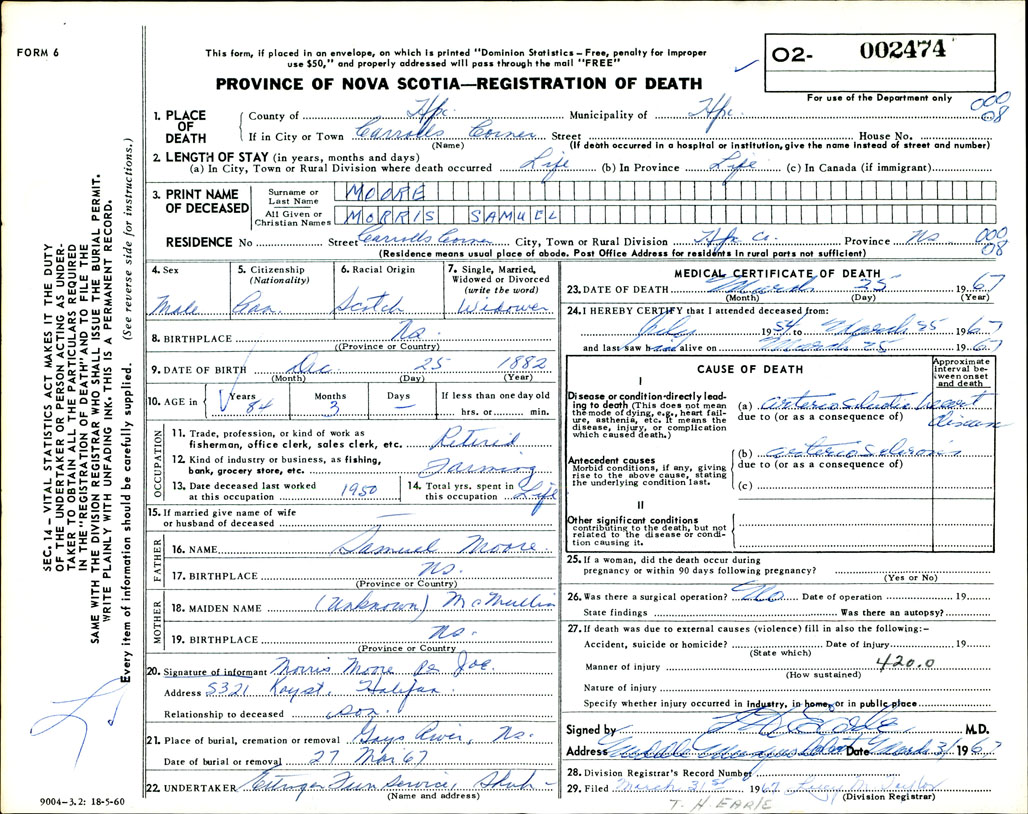 FORM 6
This form, if placed in an envelope, on which is printed "Dominion Statistics – Free, penalty for improper
use $50," and properly addressed will pass through the mail "FREE"
02- 002474
PROVINCE OF NOVA SCOTIA—REGISTRATION OF DEATH
For use of the Department only
000
08
1. PLACE OF DEATH
County of Hfx. Municipality of Hfx.
If in City or Town Carrolls Corner Street House No.
(Name) (If death occurred in a hospital or institution, give the name instead of street and number)
2. LENGTH OF STAY (in years, months and days)
(a) In City, Town or Rural Division where death occurred Life (b) In Province Life (c) In Canada (if immigrant)
3. PRINT NAME OF DECEASED
Surname or Last Name MOORE
All Given or Christian Names MORRIS SAMUEL
RESIDENCE No Street Carrolls Corner City, Town or Rural Division Hfx Co. Province NS 000
08
(Residence means usual place of abode. Post Office Address for residents in rural parts not sufficient)
4. Sex Male
5. Citizenship (Nationality) Can.
6. Racial Origin Scotch
7. Single, Married, Widowed or Divorced (write the word) Widower
8. BIRTHPLACE Ns.
((Province or Country)
9. DATE OF BIRTH Dec. 25 1882
(Month) (Day) (Year)
10. AGE in Years 84 Months 3 Days — If less than one day old
hrs. or min.
OCCUPATION
11. Trade, profession, or kind of work as
fisherman, office clerk, sales clerk, etc. Retired
12. Kind of industry or business, as fishing,
bank, grocery store, etc. Farming
13. Date deceased last worked
at this occupation 1950
14. Total yrs. spent in
this occupation Life
15. If married give name of wife
or husband of deceased —
FATHER
16. NAME Samuel Moore
17. BIRTHPLACE Ns.
(Province or Country)
MOTHER
18. MAIDEN NAME (Unknown) McMullin
19. BIRTHPLACE Ns.
(Province or Country
20. Signature of informant Morris Moore per Joe.
Address 5321 Kay st. Halifax.
Relationship to deceased son.
21. Place of burial, cremation or removal Gays River, Ns.
Date of burial or removal 27 Mar 67
22. UNDERTAKER Ettinger Fun Service, Shub –
(Name and address)
MEDICAL CERTIFICATE OF DEATH
23. DATE OF DEATH March 25 1967
(Month) (Day) (Year)
24. I HEREBY CERTIFY that I attended deceased from:
July 1954 to March 25 1967
and last saw h alive on March 25 1967
CAUSE OF DEATH
Approximate interval be-
tween onset
and death
I
Disease or condition directly lead-
ing to death (This does not mean
the mode of dying, e.g., heart fail-
ure, asthenia, etc. It means the
disease, injury, or complication
which caused death.)
(a) arteriosclerotic heart disease
due to (or as a consequence of)
Antecedent causes
Morbid conditions, if any, giving
rise to the above cause, stating
the underlying condition last.
(b) arteriosclerosis
due to (or as a consequence of)
(c)
II
Other significant conditions
contributing to the death, but not
related to the disease or condi-
tion causing it.
25. If a woman, did the death occur during
pregnancy or within 90 days following pregnancy?
(Yes or No)
26. Was there a surgical operation? No Date of operation 19
State findings Was there an autopsy?
27. If death was due to external causes (violence) fill in also the following:–
Accident, suicide or homicide? Date of injury 19
(State which)
Manner of injury 420.0
(How sustained)
Nature of injury
Specify whether injury occurred in industry, in home, or in public place
Signed by T H Earle M.D.
Address Middle Musquodoboit Date March 31 1967
28. Division Registrar's Record Number
29. Filed March 31st 1967 Lucy M. Taylor
(Division Registrar)
T. H EARLE
SEC. 14 – VITAL STATISTICS ACT MAKES IT THE DUTY
OF THE UNDERTAKER OR PERSON ACTING AS UNDER-
TAKER TO OBTAIN ALL THE PARTICULARS REQUIRED
IN THE "REGISTRATION OF DEATH" AND TO FILE THE
SAME WITH THE DIVISION REGISTRAR WHO SHALL ISSUE THE BURIAL PERMIT.
WRITE PLAINLY WITH UNFADING INK. THIS IS A PERMANENT RECORD.
Every item of information should be carefully supplied. (See reverse side for instructions.)
9004–3.2: 18-5-60